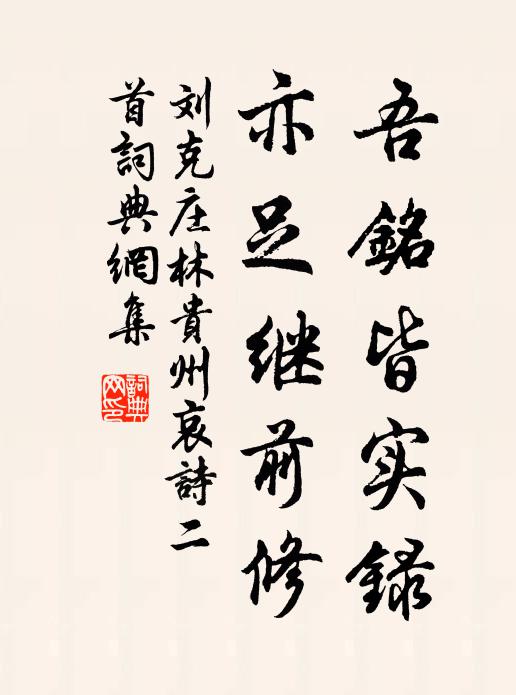 吾銘皆实録
亦足继前修
刘克庄林貴州哀詩二
首詞典網集
詞典网印